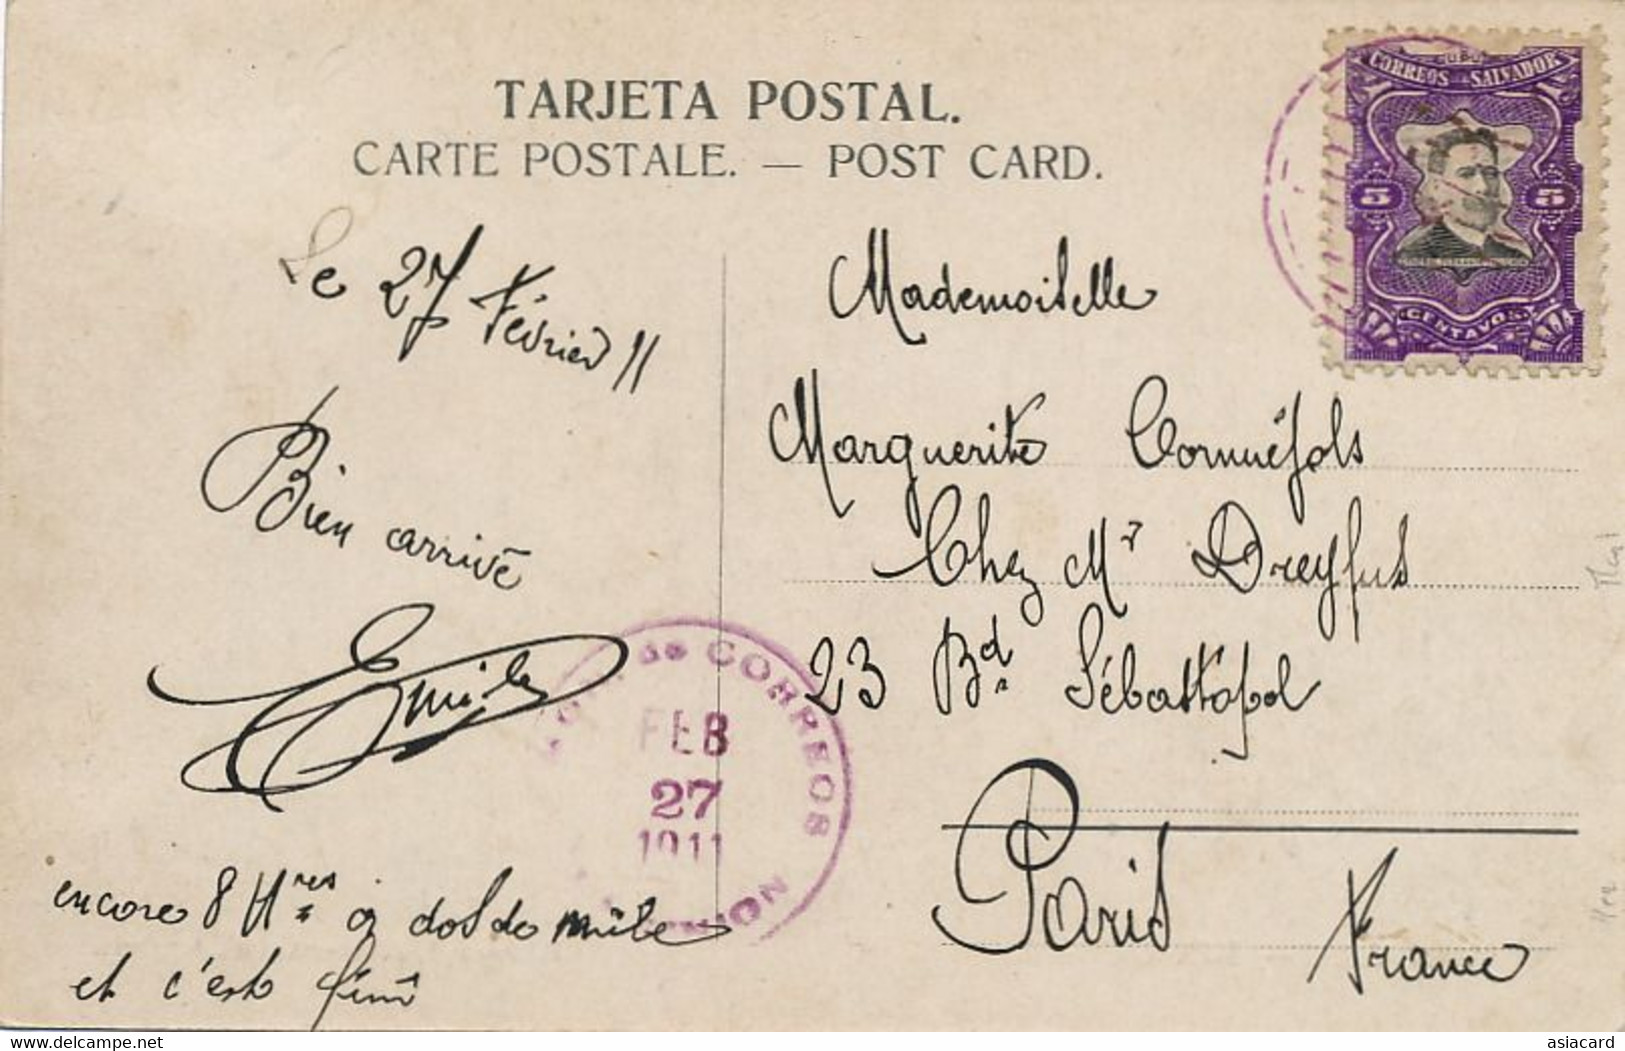 TARJETA POSTAL.
CARTE POSTALE. — POST CARD.
CORREOS SALVADOR
5 5
CENTAVOS
Le 27 Février 11
Bien arrivé
Emile
encore 8 Hres à dos de mule
et c'est fini
de CORREOS
FEB
27
1911
Mademoiselle
Marguerite Cornuéjols
Chez Mr Dreyfus
23 Bd Sébastopol
Paris
France
https://www.delcampe.net
asiacard